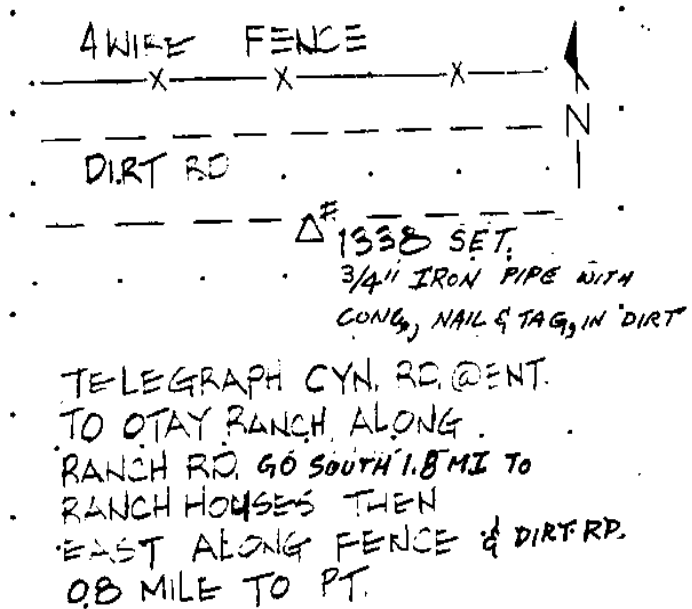 4 WIRE FENCE
N
DIRT RD
△# 1338 SET.
3/4" IRON PIPE WITH
CONC, NAIL & TAG, IN DIRT
TELEGRAPH CYN. RD. @ ENT.
TO OTAY RANCH, ALONG
RANCH RD. GO SOUTH 1.8 MI TO
RANCH HOUSES THEN
EAST ALONG FENCE & DIRT RD.
0.8 MILE TO PT.